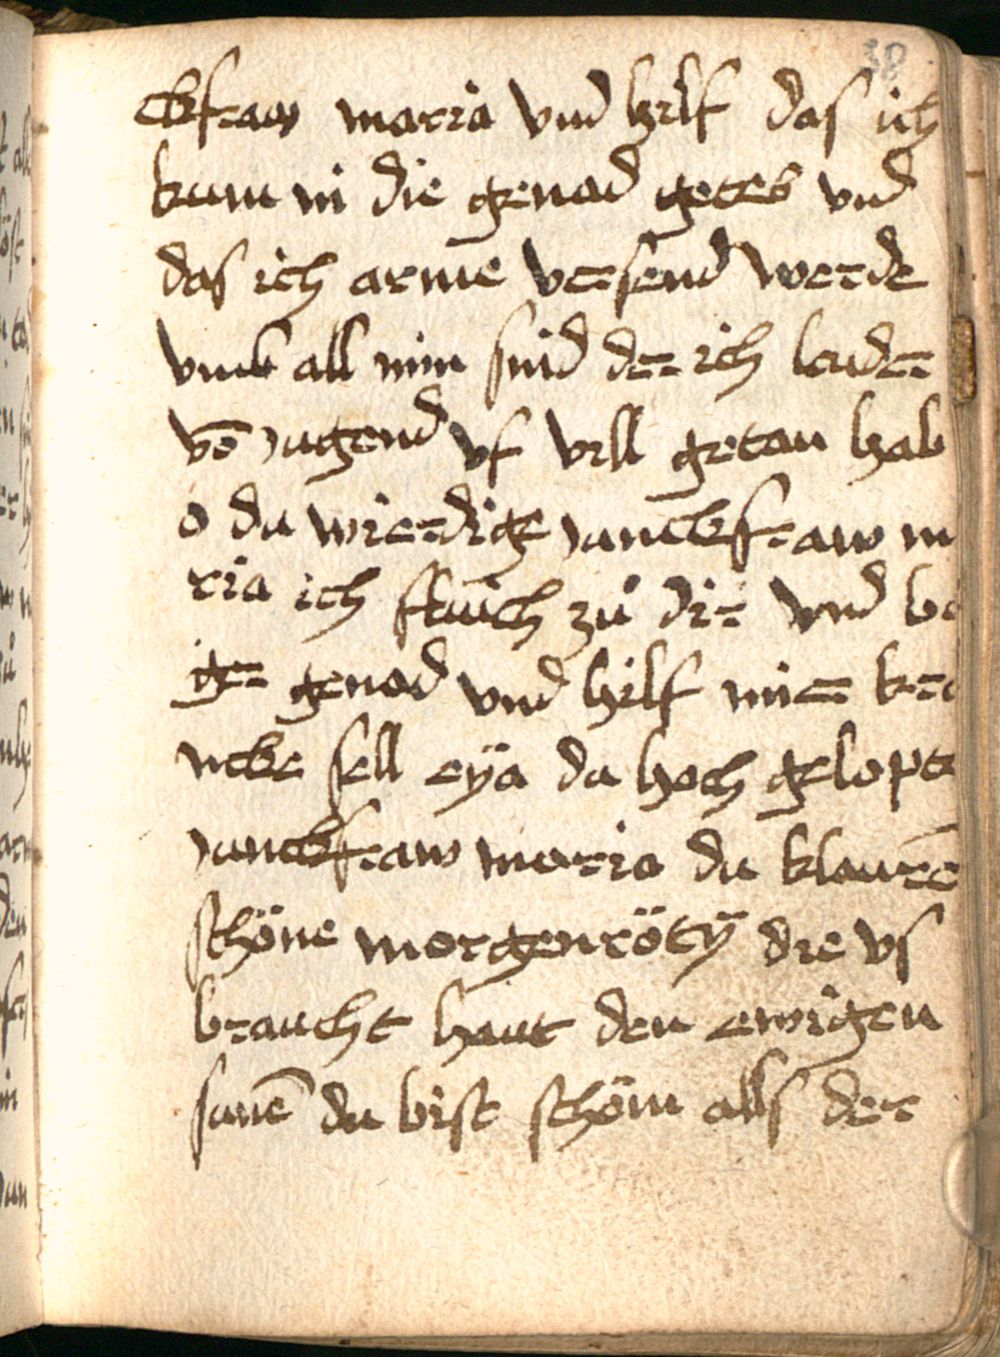 38
ckfraw maria vnd hilf das ich
kum in die genad gotes vnd
das ich arme versend werde
vmb all min sind der ich leider
vō iugend vf vill getan hab
o du wierdige iunckfraw m
ria ich fleüch zů dir vnd be
ger genad vnd hilf mier kra
ncke sell eÿa du hoch gelopte
iunckfraw maria du klaurē
schöne morgenrötÿ die vs
braucht haut den ewigen
sunē du bist schöm alls der